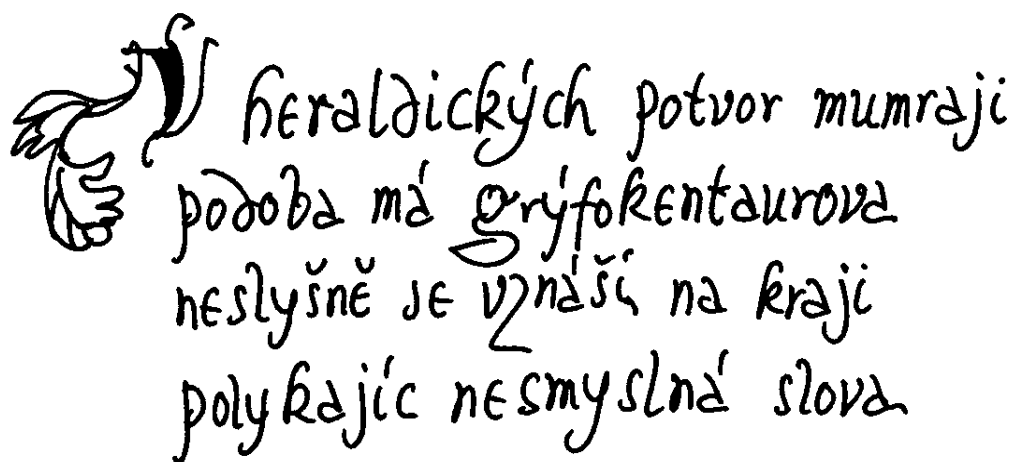 V heraldických potvor mumraji
podoba má grýfokentaurova
neslyšně se vznáší na kraji
polykajíc nesmyslná slova